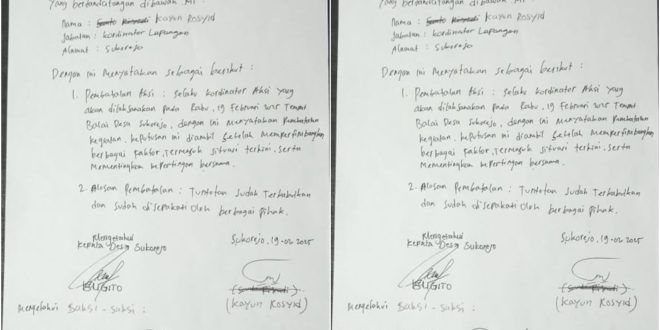 Yang bertandatangan dibawah ini :
Nama : Kayun Rosyid
Jabatan : kordinator Lapangan
Alamat : Sukorejo
Dengan ini Menyatakan sebagai berikut :
1. Pembatalan Aksi : Selaku kordinator Aksi yang
akan dilaksanakan pada Rabu, 19 Februari 2025 Tempat
Balai Desa Sukorejo, dengan ini Menyatakan Pembatalan
kegiatan. keputusan ini diambil Setelah Mempertimbangkan
berbagai Faktor, Termasuk Situasi terkini, Serta
Mementingkan kepentingan bersama.
2. Alasan Pembatalan : Tuntutan Sudah Terkabulkan
dan sudah disepakati Oleh berbagai pihak.
Mengetahui
Kepala Desa Sukorejo
Sukorejo, 19-02-2025
SUGITO
(Kayun Rosyid)
Mengetahui Saksi - saksi :
Yang bertandatangan dibawah ini :
Nama : Kayun Rosyid
Jabatan : kordinator Lapangan
Alamat : Sukorejo
Dengan ini Menyatakan sebagai berikut :
1. Pembatalan Aksi : Selaku kordinator Aksi yang
akan dilaksanakan pada Rabu, 19 Februari 2025 Tempat
Balai Desa Sukorejo, dengan ini Menyatakan Pembatalan
kegiatan. keputusan ini diambil Setelah Mempertimbangkan
berbagai Faktor, Termasuk Situasi terkini, Serta
Mementingkan kepentingan bersama.
2. Alasan Pembatalan : Tuntutan Sudah Terkabulkan
dan sudah disepakati Oleh berbagai pihak.
Mengetahui
Kepala Desa Sukorejo
Sukorejo, 19-02-2025
SUGITO
(Kayun Rosyid)
Mengetahui Saksi - saksi :